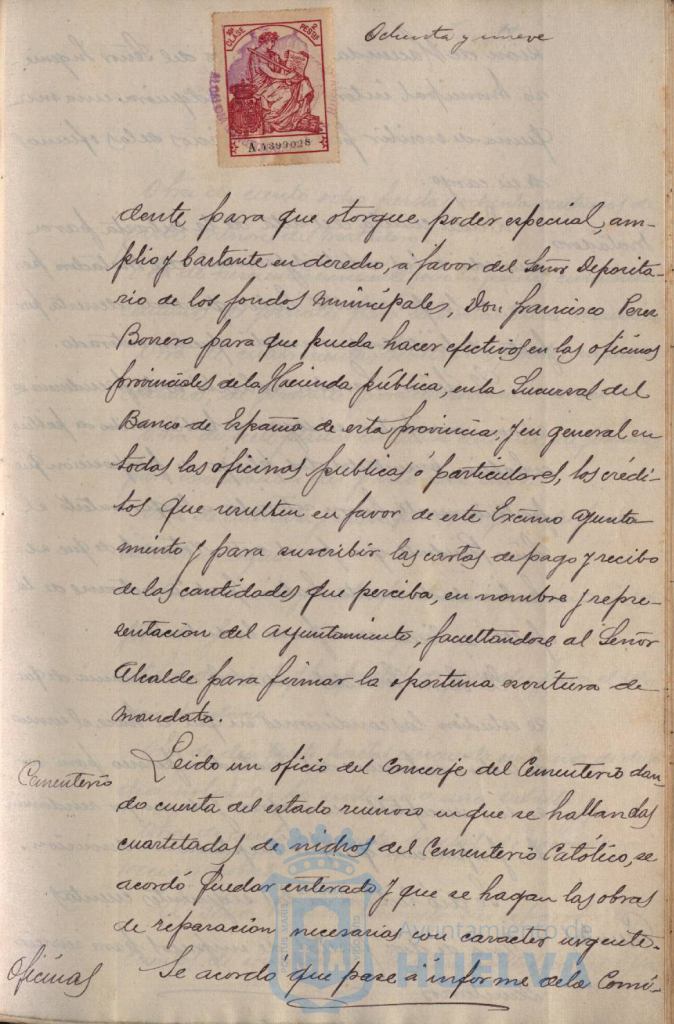 Ochenta y nueve
10ª CLASE
2 PESETAS
A.4399028
dente para que otorgue poder especial, am-
plio y bastante en derecho, a favor del Señor Deposita-
rio de los fondos municipales, Don Francisco Perez
Borrero para que pueda hacer efectivos en las oficinas
provinciales de la Hacienda pública, en la Sucursal del
Banco de España de esta provincia, y en general en
todas las oficinas publicas ó particulares, los crédi-
tos que resulten en favor de este Excmo Ayunta
miento y para suscribir las cartas de pago y recibo
de las cantidades que perciba, en nombre y repre-
sentacion del Ayuntamiento, facultandose al Señor
Alcalde para firmar la oportuna escritura de
mandato.
Cementerio
Leido un oficio del Conserje del Cementerio dan-
do cuenta del estado ruinoso en que se hallan das
cuarteladas de nichos del Cementerio Católico, se
acordó quedar enterado y que se hagan las obras
de reparación necesarias con caracter urgente.
Oficinas
Se acordó que pase á informe de la Comi-
Ayuntamiento de
HUELVA